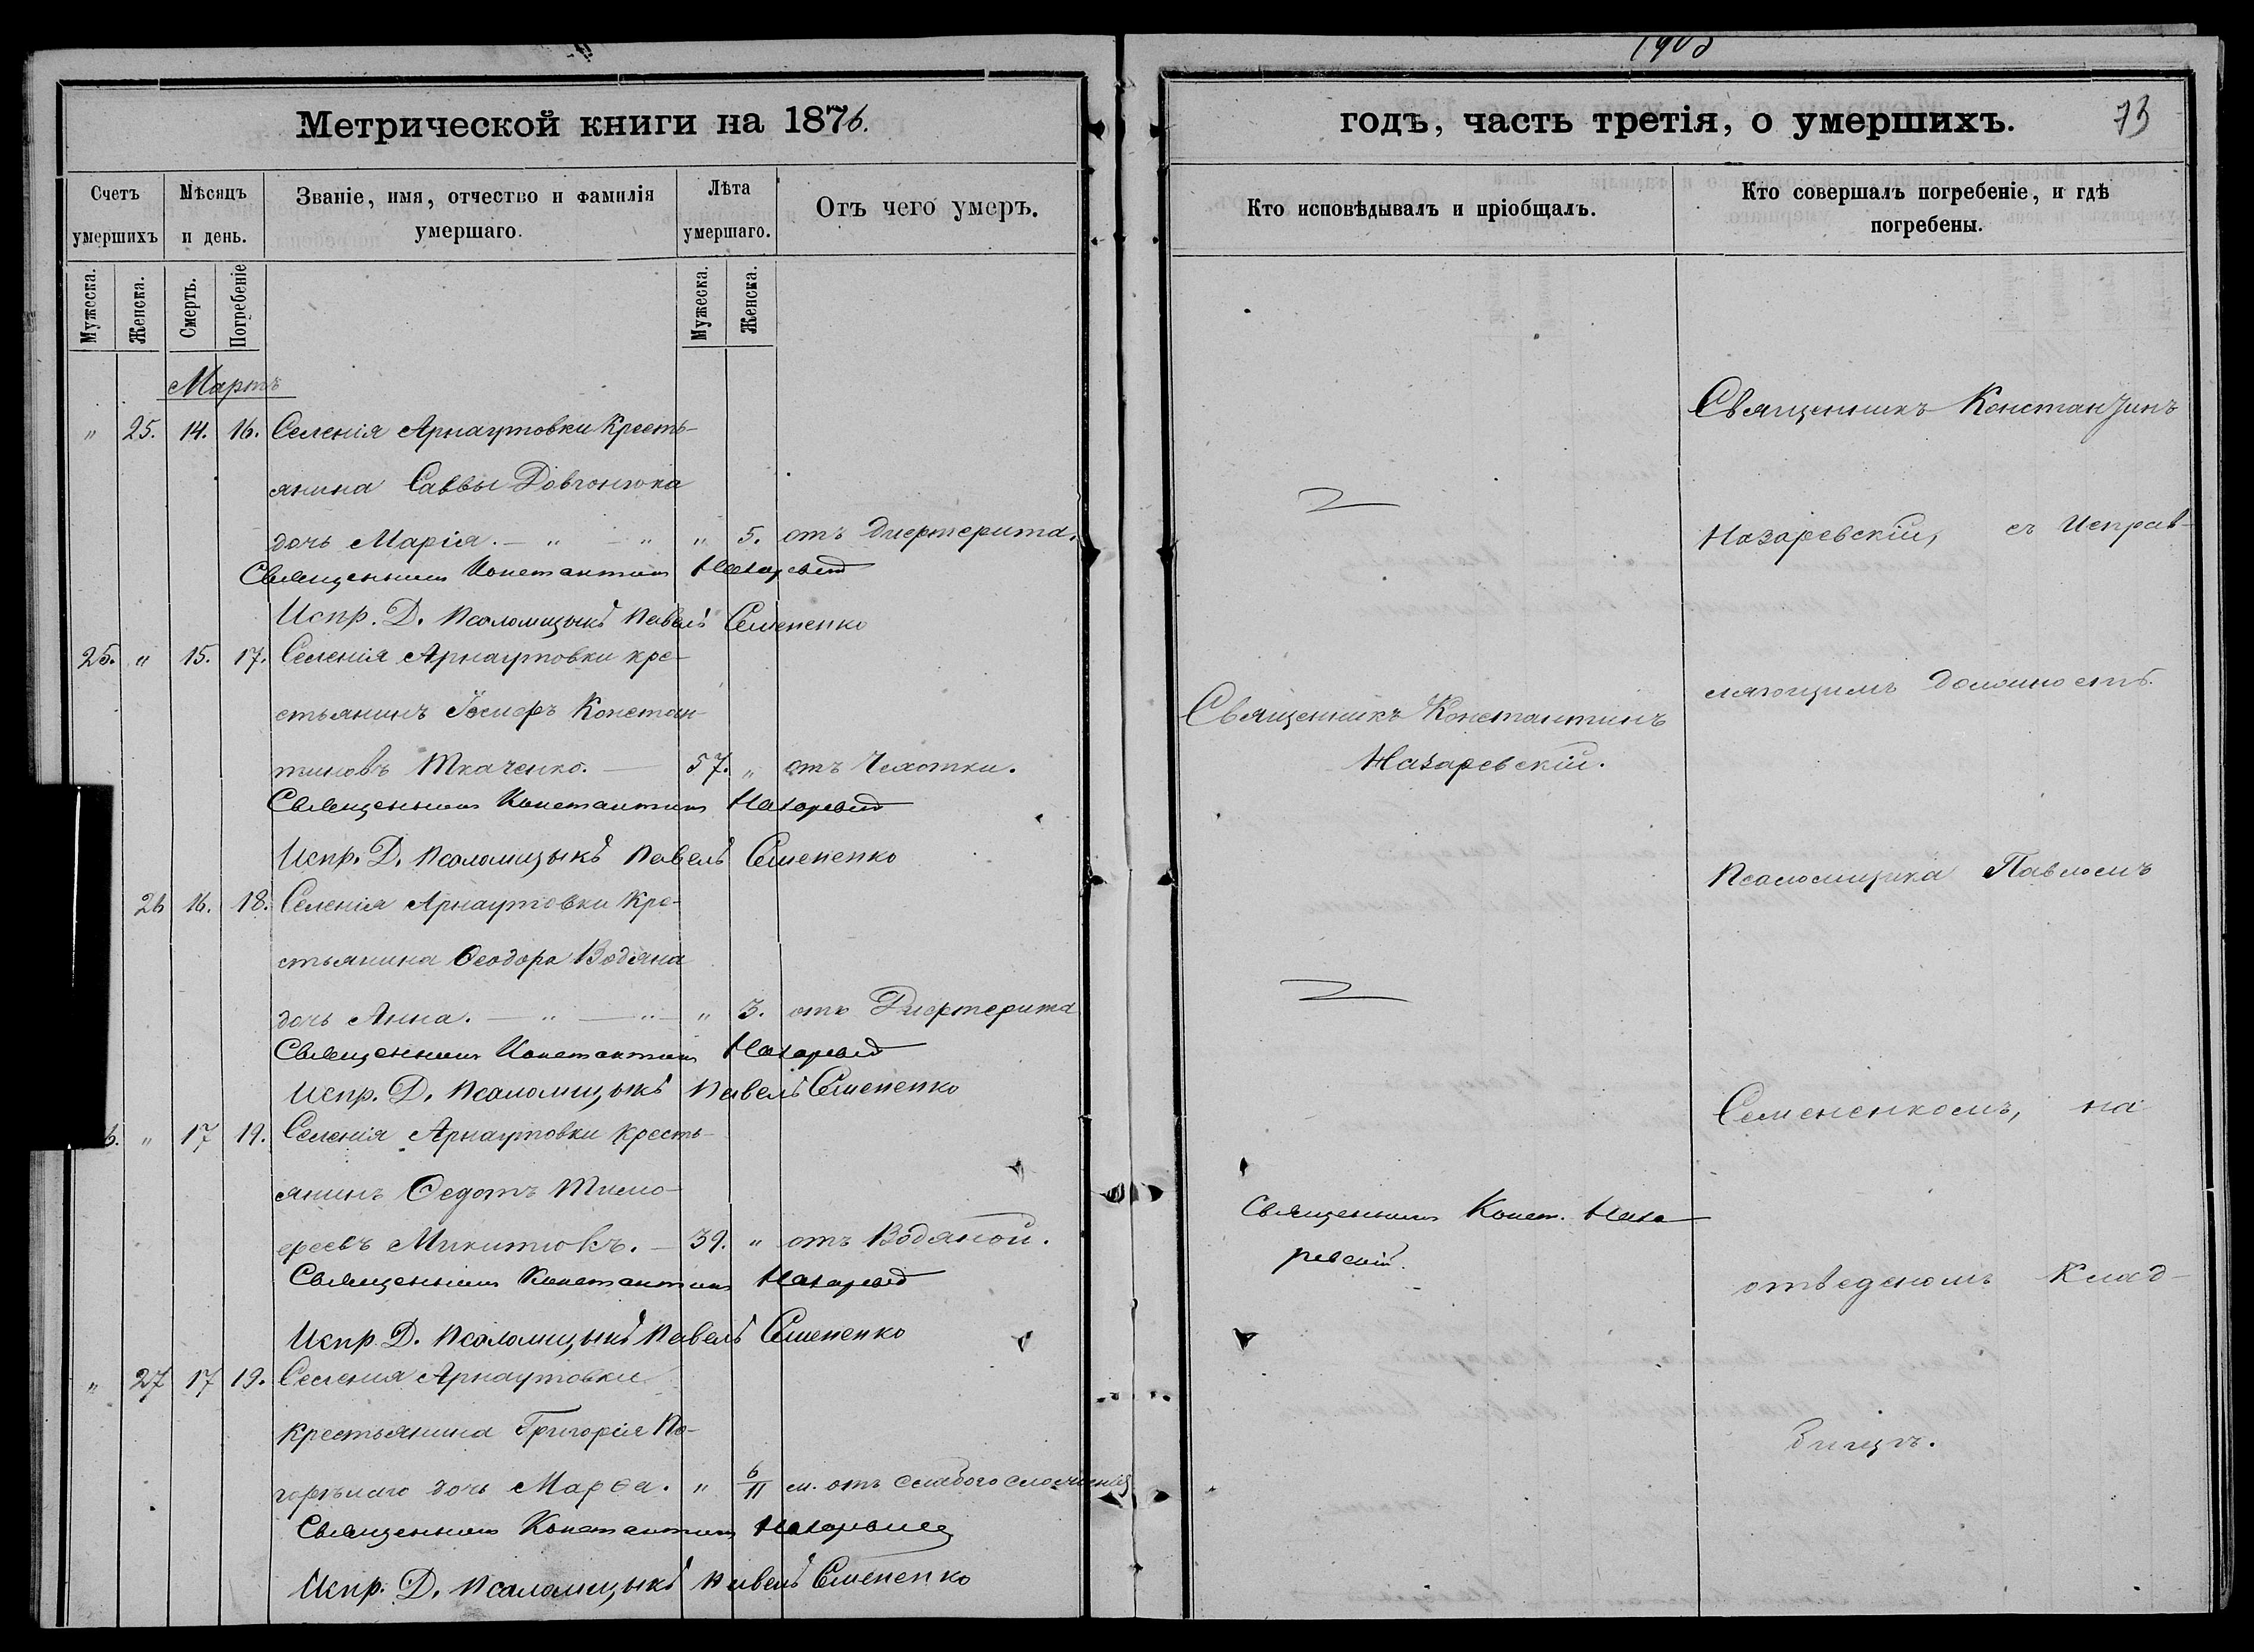 Метрической книги на 1876.
Счетъ умершихъ
Мѣсяцъ и день.
Званіе, имя, отчество и фамилія умершаго.
Лѣта умершаго.
Отъ чего умеръ.
Мужеска.
Женска.
Смерть.
Погребеніе
Мужеска.
Женска.
Мартъ
„ 25. 14. 16. Селенія Арнаутовки Кресть-
янина Саввы Довгонюка
дочь Марія. — „ — „ „ 5. отъ Дифтерита.
Священникъ Константинъ Назаревскій
Испр. Д. Псаломщыкъ Павелъ Семененко
25. „ 15. 17. Селенія Арнаутовки кре-
стьянинъ Іосифъ Констан-
тиновъ Ткаченко. — 57. „ отъ Чахотки.
Священникъ Константинъ Назаревскій
Испр. Д. Псаломщыкъ Павелъ Семененко
26 16. 18. Селенія Арнаутовки Кре-
стьянина Ѳеодора Водяна
дочь Анна. — „ — „ — „ 3. отъ Дифтерита
Священникъ Константинъ Назаревскій
Испр. Д. Псаломщыкъ Павелъ Семененко
6. „ 17 19. Селенія Арнаутовки кресть-
янинъ Ѳедотъ Тимо-
феевъ Микитюкъ. — 39. „ отъ Водяной.
Священникъ Константинъ Назаревскій
Испр. Д. Псаломщыкъ Павелъ Семененко
„ 27 17 19. Селенія Арнаутовки
крестьянина Григорія По-
горѣлаго дочь Марѳа. „ 6/11 м. отъ слабого сложенія
Священникъ Константинъ Назаревскій
Испр. Д. Псаломщыкъ Павелъ Семененко
годъ, часть третія, о умершихъ.
73
Кто исповѣдывалъ и пріобщалъ.
Кто совершалъ погребеніе, и гдѣ погребены.
Священникъ Константинъ
Назаревскій.
Священникъ Конст. Наза
ревскій.
Священникъ Константинъ
Назаревскій, съ Исправ-
ляющимъ должность
Псаломщика Павломъ
Семененкомъ, на
отведеномъ Клад-
бищѣ.